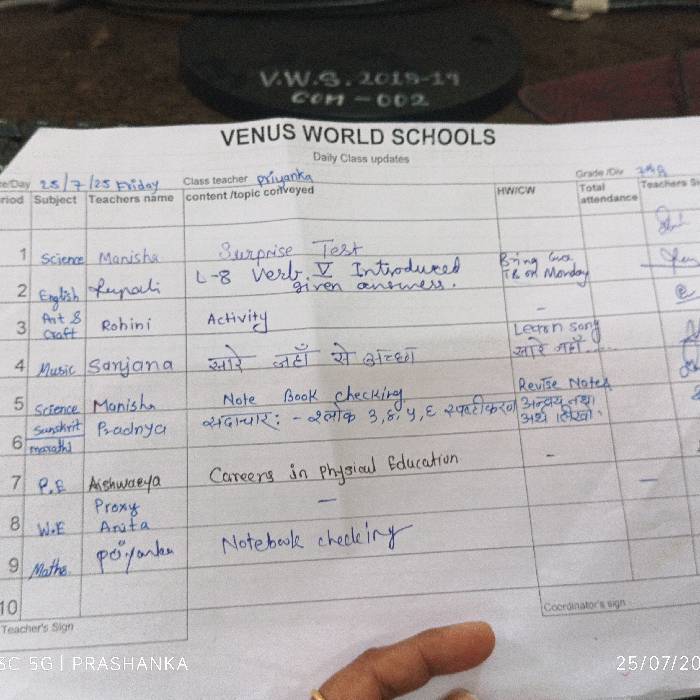 V.W.S. 2018-19
COM - 002
VENUS WORLD SCHOOLS
Daily Class updates
e/Day 25/7/25 Friday Class teacher Priyanka Grade /Div
riod Subject Teachers name content /topic conveyed HW/CW Total attendance Teachers S
1 Science Manisha Surprise Test
2 English Rupali L-8 Verb. V Introduced given answers. Bring TB on Monday
3 Art & Craft Rohini Activity -
4 Music Sanjana सारे जहाँ से अच्छा Learn song सारे जहाँ.....
5 Science Manisha Note Book checking Revise Notes
6 Sunskrit marathi Pradnya सदाचारः - श्लोक ३,४,५,६ स्पष्टीकरण अन्वय तथा अर्थ लिखो.
7 P.E Aishwaeya Careers in physical Education -
8 W.E Proxy Anita — —
9 Maths Priyanka Notebook checking
10
Teacher's Sign Coordinator's sign
SC 5G | PRASHANKA 25/07/20